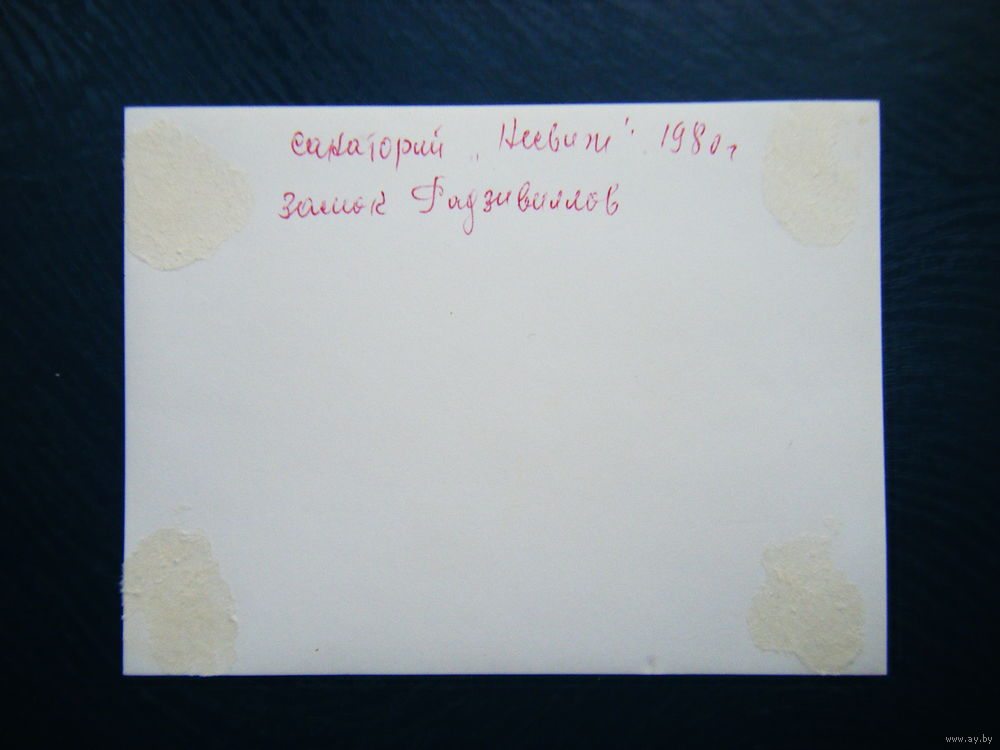 санаторий „Несвиж" 1980г
замок Радзивиллов
www.ay.by